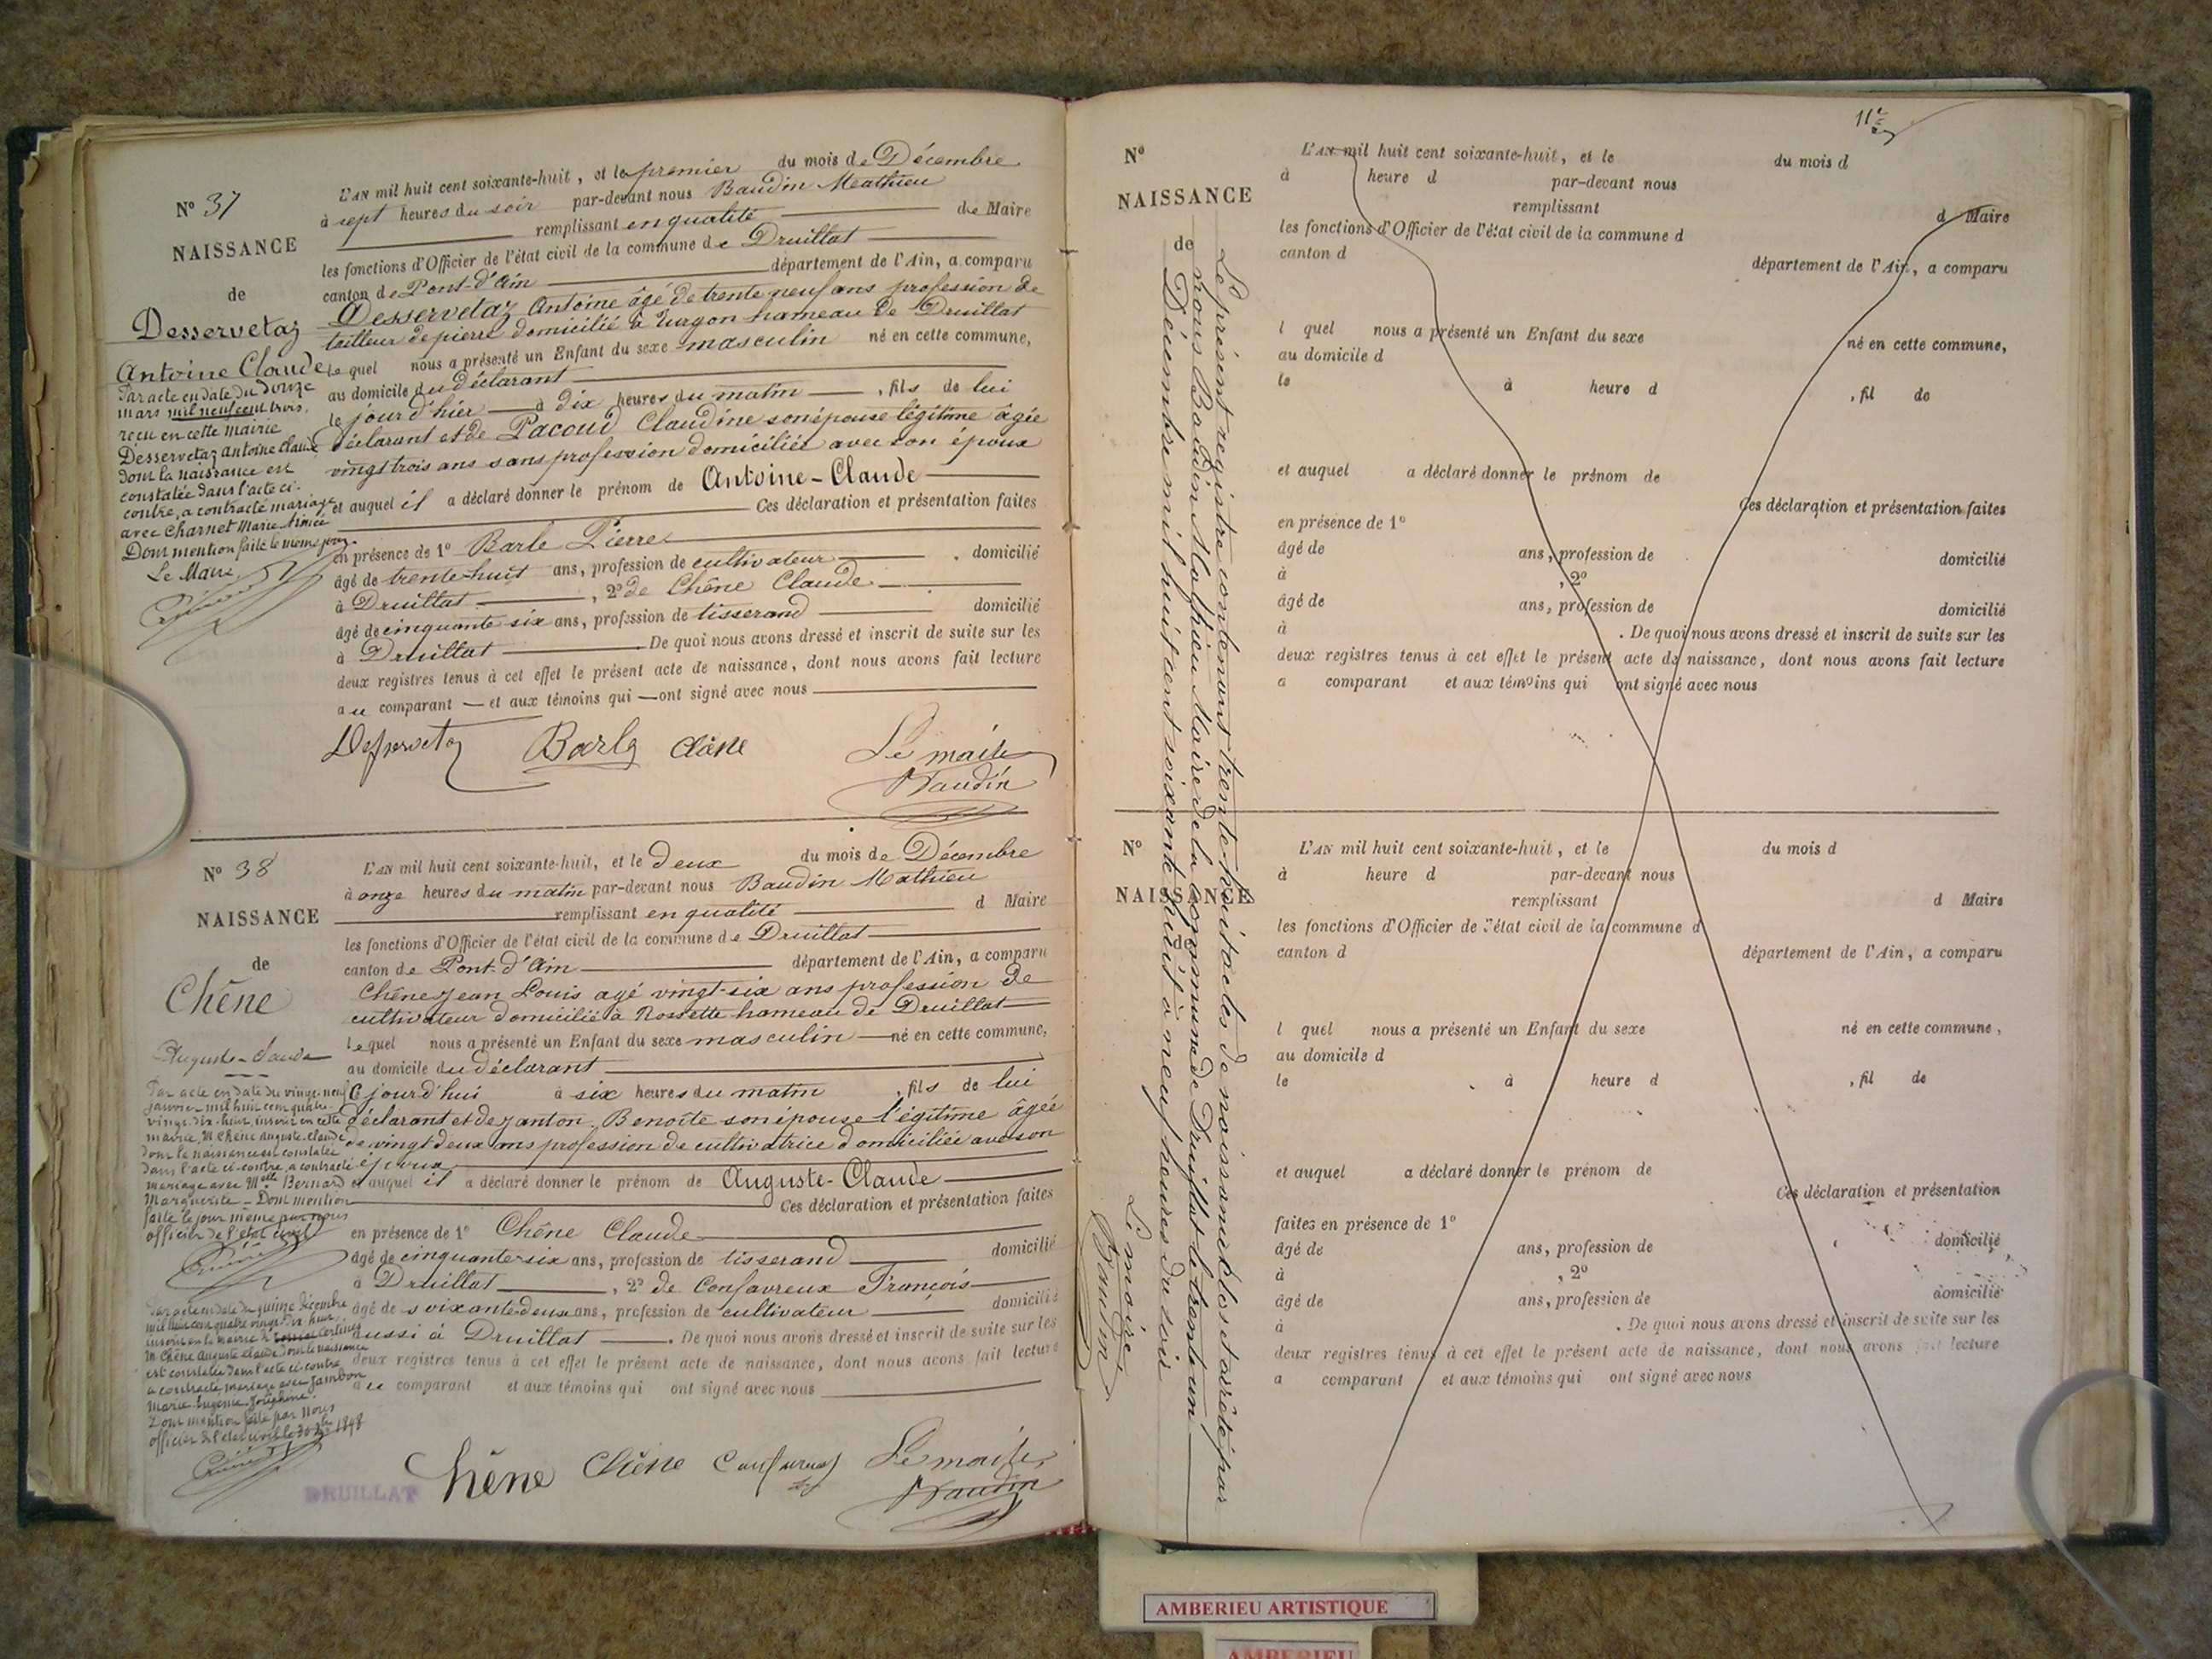 N° 37
NAISSANCE
de
Desservetaz
Antoine Claude
Par acte en date du douze
mars mil neuf cent trois,
reçu en cette mairie
Desservetaz antoine claude
dont la naissance est
constatée dans l'acte ci-
contre, a contracté mariage
avec Charnet Marie Aimée
Dont mention faite le meme jour.
Le Maire
L'AN mil huit cent soixante-huit, et le premier du mois de Décembre
à sept heures du soir par-devant nous Baudin Mathieu
remplissant en qualité de Maire
les fonctions d'Officier de l'état civil de la commune de Druillat
canton de Pont-d'Ain département de l'Ain, a comparu
Desservetaz Antoine âgé de trente neuf ans profession de
tailleur de pierre domicilié à Turgon hameau de Druillat
lequel nous a présenté un Enfant du sexe masculin né en cette commune,
au domicile du déclarant
le jour d'hier à dix heures du matin, fils de lui
déclarant et de Pacoud Claudine son épouse légitime âgée
vingt trois ans sans profession domiciliée avec son époux
et auquel il a déclaré donner le prénom de Antoine-Claude
Ces déclaration et présentation faites
en présence de 1° Barle Pierre
âgé de trente-huit ans, profession de cultivateur, domicilié
à Druillat, 2° de Chêne Claude
âgé de cinquante six ans, profession de tisserand domicilié
à Druillat De quoi nous avons dressé et inscrit de suite sur les
deux registres tenus à cet effet le présent acte de naissance, dont nous avons fait lecture
au comparant et aux témoins qui ont signé avec nous
Desservetaz Barle Chêne Le maire
Baudin
N° 38
NAISSANCE
de
Chêne
Auguste-Claude
Par acte en date du vingt-neuf
janvier mil huit cent quatre-
vingt-dix-huit, inscrit en cette
mairie, M Chêne Auguste-claude
dont la naissance est constatée
dans l'acte ci-contre, a contracté
mariage avec Melle Bernard
Marguerite - Dont mention
faite le jour même par nous
officier de l'état civil
Par acte en date du quinze décembre
mil huit cent quatre vingt-dix huit
inscrit en la mairie de Certines
M Chêne Auguste claude dont la naissance
est constatée dans l'acte ci-contre
a contracté mariage avec Jambon
Marie-Eugénie-Joséphine.
Dont mention faite par nous
officier de l'état civil le 1898
L'AN mil huit cent soixante-huit, et le deux du mois de Décembre
à onze heures du matin par-devant nous Baudin Mathieu
remplissant en qualité d Maire
les fonctions d'Officier de l'état civil de la commune de Druillat
canton de Pont-d'Ain département de l'Ain, a comparu
Chêne Jean Louis agé vingt-six ans profession de
cultivateur domicilié à Rossette hameau de Druillat
lequel nous a présenté un Enfant du sexe masculin né en cette commune,
au domicile du déclarant
ce jourd'hui à six heures du matin, fils de lui
déclarant et de Janton Benoîte son épouse légitime âgée
de vingt deux ans profession de cultivatrice domiciliée avec son
époux
et auquel il a déclaré donner le prénom de Auguste-Claude
Ces déclaration et présentation faites
en présence de 1° Chêne Claude
âgé de cinquante six ans, profession de tisserand domicilié
à Druillat, 2° de Confavreux François
âgé de soixante deux ans, profession de cultivateur domicilié
aussi à Druillat. De quoi nous avons dressé et inscrit de suite sur les
deux registres tenus à cet effet le présent acte de naissance, dont nous avons fait lecture
au comparant et aux témoins qui ont signé avec nous
Chêne Chêne Confavreux Le maire,
Baudin
DRUILLAT
Le présent registre contenant trente-huit actes de naissance clos et arrêté par
nous Baudin Mathieu Maire de la commune de Druillat le trente un
Décembre mil huit cent soixante-huit à neuf heures du soir
Le maire
Baudin
N°
NAISSANCE
de
L'AN mil huit cent soixante-huit, et le du mois d
à heure d par-devant nous
remplissant d Maire
les fonctions d'Officier de l'état civil de la commune d
canton d département de l'Ain, a comparu
l quel nous a présenté un Enfant du sexe né en cette commune,
au domicile d
le à heure d, fil de
et auquel a déclaré donner le prénom de
Ces déclaration et présentation faites
en présence de 1°
âgé de ans, profession de domicilié
à, 2°
âgé de ans, profession de domicilié
à. De quoi nous avons dressé et inscrit de suite sur les
deux registres tenus à cet effet le présent acte de naissance, dont nous avons fait lecture
a comparant et aux témoins qui ont signé avec nous
N°
NAISSANCE
de
L'AN mil huit cent soixante-huit, et le du mois d
à heure d par-devant nous
remplissant d Maire
les fonctions d'Officier de l'état civil de la commune d
canton d département de l'Ain, a comparu
l quel nous a présenté un Enfant du sexe né en cette commune,
au domicile d
le à heure d, fil de
et auquel a déclaré donner le prénom de
Ces déclaration et présentation
faites en présence de 1°
âgé de ans, profession de domicilié
à, 2°
âgé de ans, profession de domicilié
à. De quoi nous avons dressé et inscrit de suite sur les
deux registres tenus à cet effet le présent acte de naissance, dont nous avons fait lecture
a comparant et aux témoins qui ont signé avec nous
AMBERIEU ARTISTIQUE
AMBERIEU